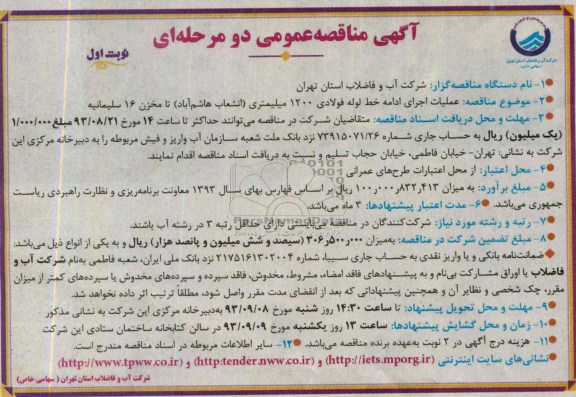 آگهی مناقصه‌عمومی دو مرحله‌ای
نوبت اول
شرکت آب و فاضلاب استان تهران
(سهامی خاص)
۱- نام دستگاه مناقصه‌گزار: شرکت آب و فاضلاب استان تهران
۲- موضوع مناقصه: عملیات اجرای ادامه خط لوله فولادی ۱۲۰۰ میلیمتری (انشعاب هاشم‌آباد) تا مخزن ۱۶ سلیمانیه
۳- مهلت و محل دریافت اسناد مناقصه: متقاضیان شرکت در مناقصه می‌توانند حداکثر تا ساعت ۱۴ مورخ ۹۳/۰۸/۲۱ مبلغ ۱/۰۰۰/۰۰۰
(یک میلیون) ریال به حساب جاری شماره ۷۳۹۱۵۰۷۱/۲۶ نزد بانک ملت شعبه سازمان آب واریز و فیش مربوطه را به دبیرخانه مرکزی این
شرکت به نشانی: تهران- خیابان فاطمی، خیابان حجاب تسلیم و نسبت به دریافت اسناد مناقصه اقدام نمایند.
۴- محل اعتبار: از محل اعتبارات طرح‌های عمرانی
۵- مبلغ برآورد: به میزان ۱۰۰٫۰۰۰٫۸۳۲٫۴۱۳ ریال بر اساس فهارس بهای سال ۱۳۹۳ معاونت برنامه‌ریزی و نظارت راهبردی ریاست
جمهوری می‌باشد. ۶- مدت اعتبار پیشنهادها: ۳ ماه می‌باشد.
۷- رتبه و رشته مورد نیاز: شرکت‌کنندگان در مناقصه می‌بایستی دارای حداقل رتبه ۳ در رشته آب باشند.
۸- مبلغ تضمین شرکت در مناقصه: به‌میزان ۳۰۶٫۵۰۰٫۰۰۰ (سیصد و شش میلیون و پانصد هزار) ریال و به یکی از انواع ذیل می‌باشد:
ضمانت‌نامه بانکی و یا واریز نقدی به حساب جاری سیبا، شماره ۲۱۷۵۱۶۱۳۰۲۰۰۴ نزد بانک ملی ایران، شعبه فاطمی به‌نام شرکت آب و
فاضلاب یا اوراق مشارکت بی‌نام و به پیشنهادهای فاقد امضاء، مشروط، مخدوش، فاقد سپرده و سپرده‌های مخدوش یا سپرده‌های کمتر از میزان
مقرر، چک شخصی و نظایر آن و همچنین پیشنهاداتی که بعد از انقضای مدت مقرر واصل شود، مطلقاً ترتیب اثر داده نخواهد شد.
۹- مهلت و محل تحویل پیشنهاد: تا ساعت ۱۴:۳۰ روز شنبه مورخ ۹۳/۰۹/۰۸ به‌دبیرخانه مرکزی این شرکت به نشانی مذکور
۱۰- زمان و محل گشایش پیشنهادها: ساعت ۱۳ روز یکشنبه مورخ ۹۳/۰۹/۰۹ در سالن کتابخانه ساختمان ستادی این شرکت
۱۱- هزینه درج آگهی در ۲ نوبت به‌عهده برنده مناقصه می‌باشد. ۱۲- سایر اطلاعات مربوطه در اسناد مناقصه مندرج است.
نشانی‌های سایت اینترنتی (http://iets.mporg.ir) و (http:tender.nww.co.ir) و (http://www.tpww.co.ir)
شرکت آب و فاضلاب استان تهران ( سهامی خاص)